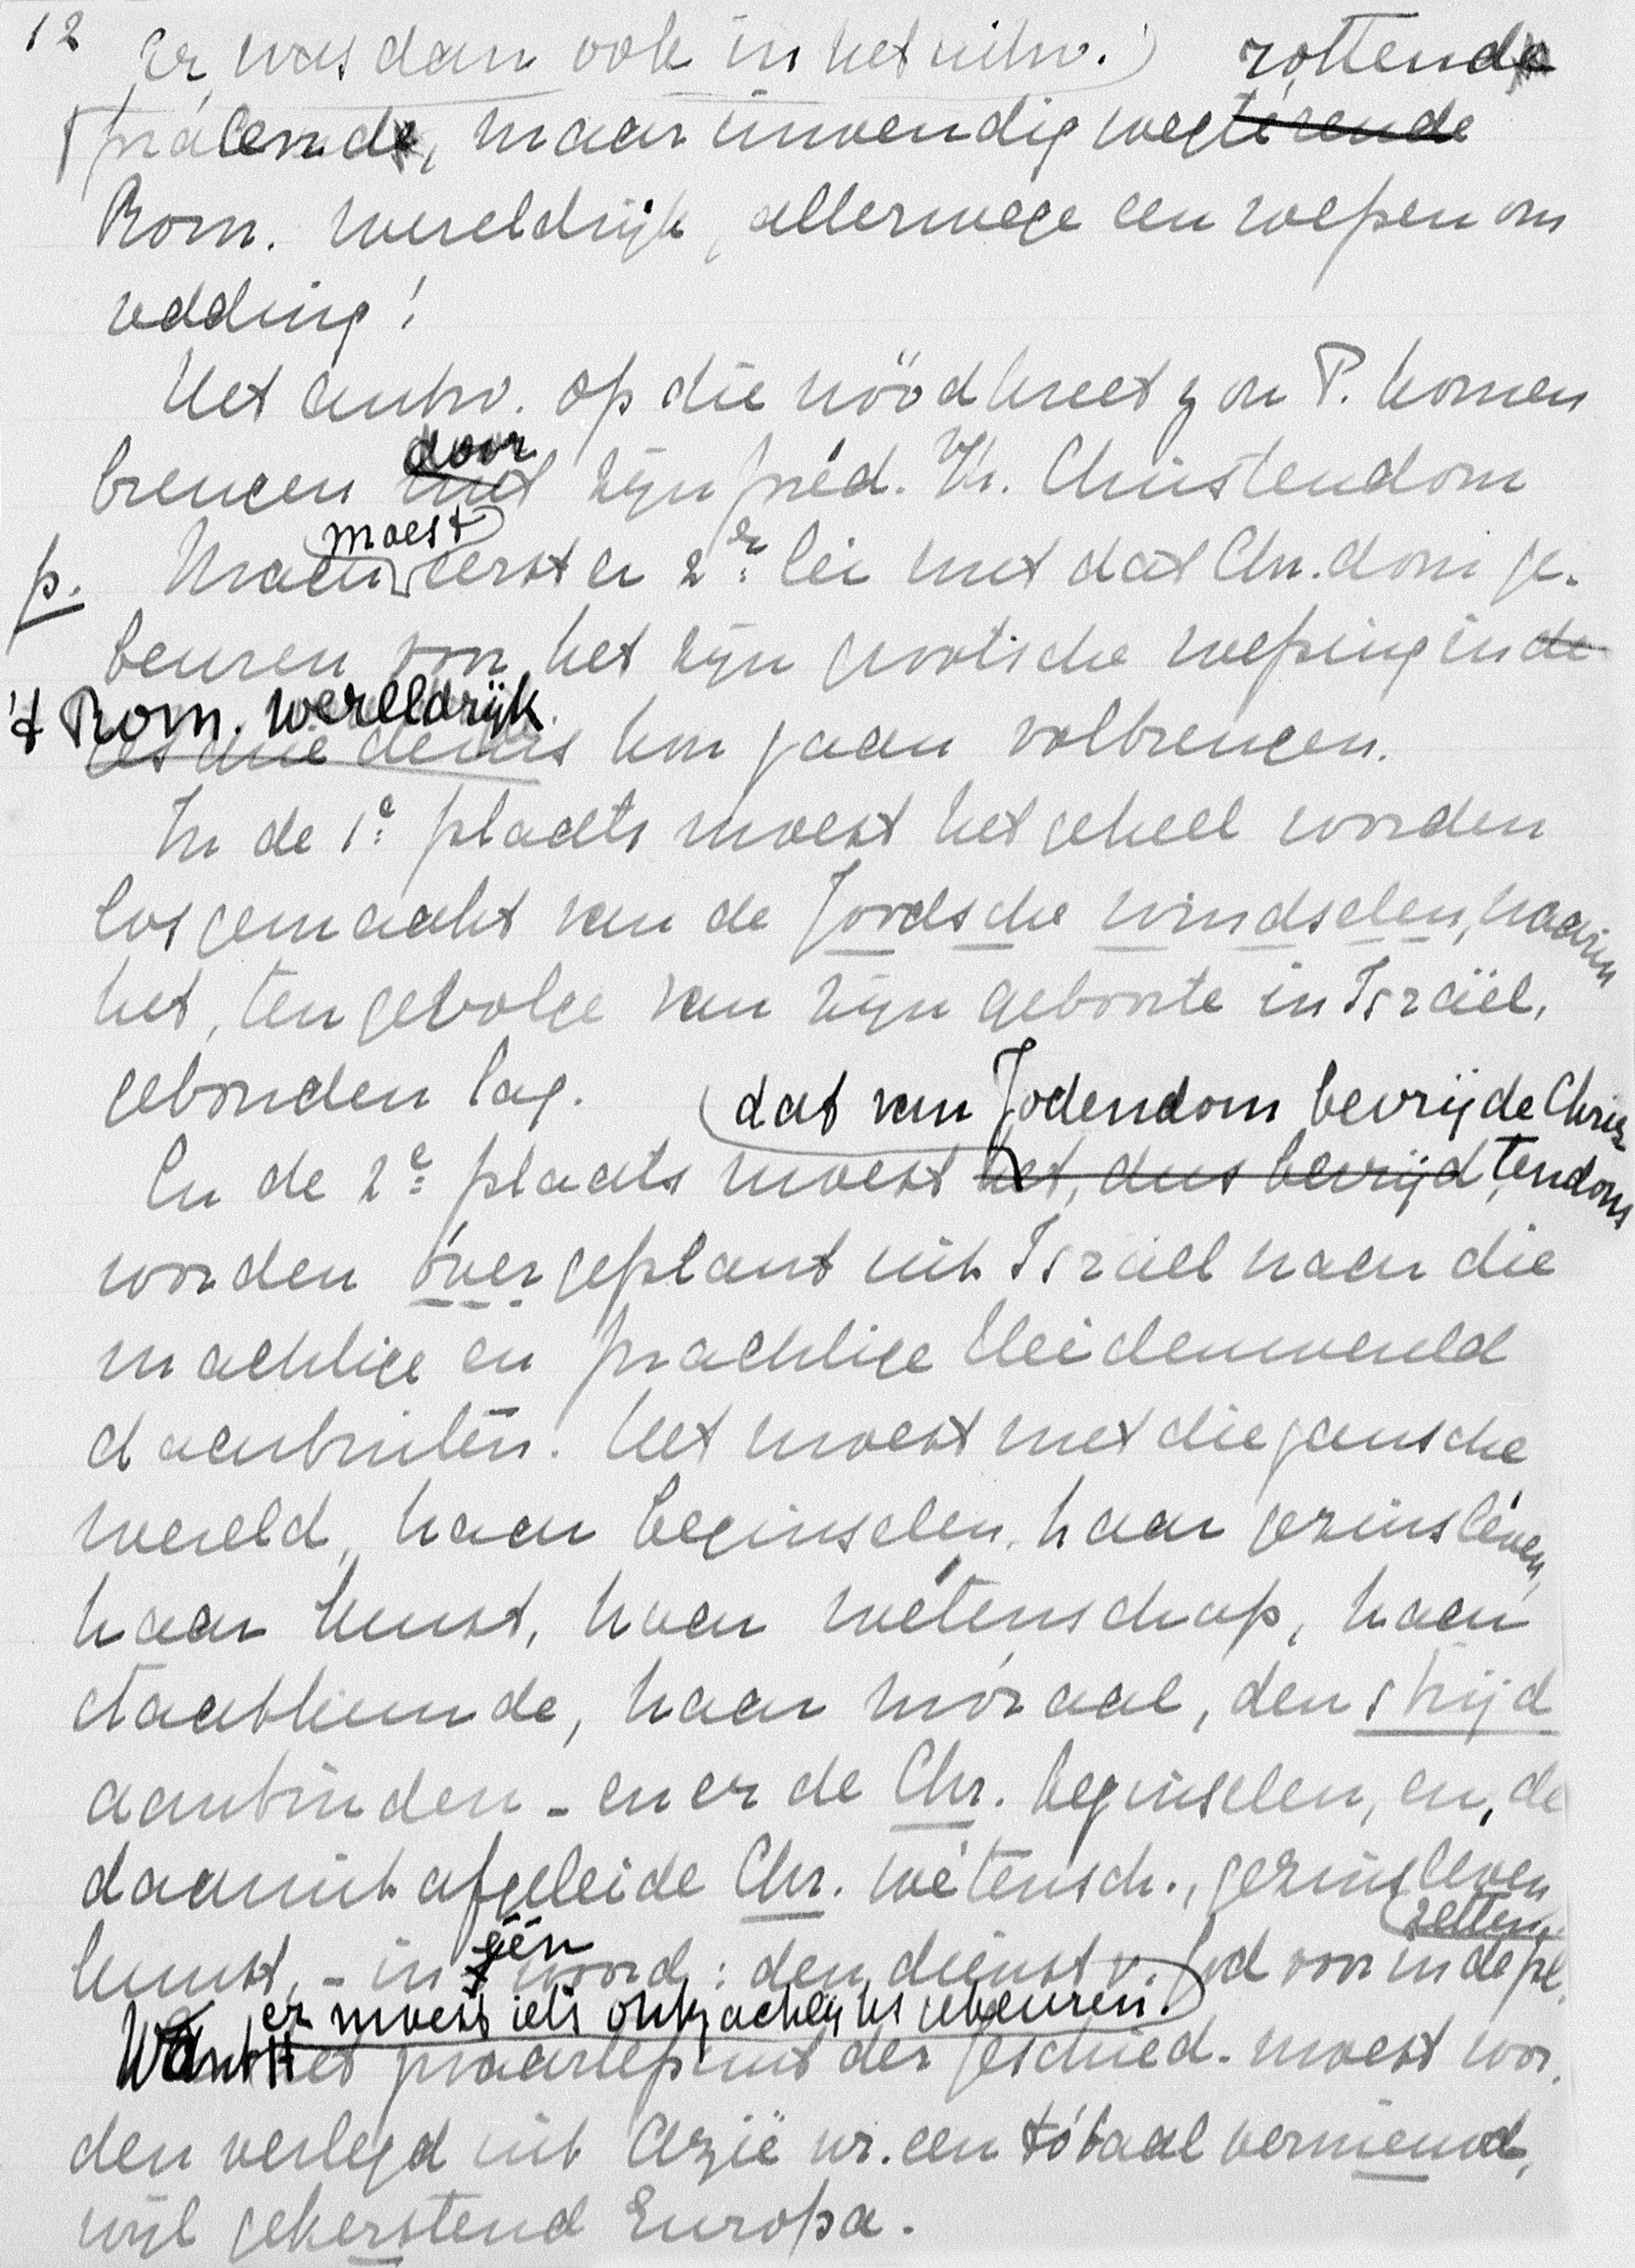 12 Er was dan ook in het uitw. rottende
pralende, maar inwendig wegterende
Rom. wereldrijk, allerwege een roepen om
redding!
Het antw. op die nóódkreet zou P. komen
brengen door met zijn préd. v. h. Christendom
p. Maar moest eerst er 2ërlei met dat Chr.dom ge-
beuren voor het zijn grootsche roeping in de
't Rom. wereldrijk
geschiedenis kon gaan volbrengen.
In de 1e plaats moest het geheel worden
losgemaakt van de Joodsche windselen, waarin
het, tengevolge van zijn geboorte in Israël,
gebonden lag.
dat van Jodendom bevrijde Chris-
En de 2e plaats moest het, dus bevrijd tendom
worden óvergeplant uit Israël naar die
machtige en prachtige Heidenwereld
daarbuiten. Het moest met die gansche
wereld, haar beginselen, haar gezinsleven,
haar kunst, haar wétenschap, haar
staatkunde, haar móraal, den strijd
aanbinden - en er de Chr. beginselen, en, de
daaruit afgeleide Chr. wétensch., gezinsleven
zetten.
kunst, - in één woord: den dienst v. God voor in de pl.
er moest iets ontzachelijks gebeuren.
Want Het zwaartepunt der geschied. moest wor-
den verlegd uit Azië nr. een tótaal vernieuwd,
wijl gekerstend Europa.